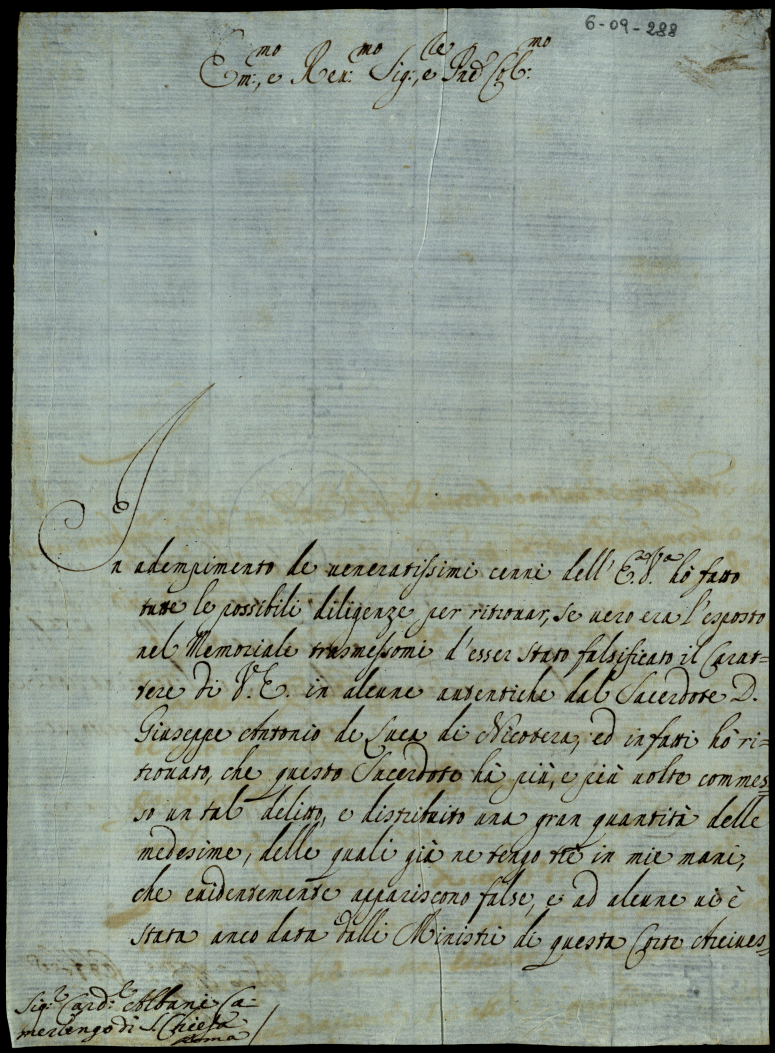 6-09-288
Em:mo, e Reu:mo Sig:, e Prōn Col:mo
In adempimento de ueneratissimi cenni dell' E.a V.a hò fatto
tutte le possibili diligenze per ritrouar, se uero era l'esposto
nel Memoriale trasmessomi d'esser stato falsificato il Carat-
tere di V.E. in alcune autentiche dal Sacerdote D.
Giuseppe Antonio de Luca di Nicotera, ed infatti hò ri-
trouato, che questo Sacerdote hà più, e più uolte commes-
so un tal delitto, e distribuito una gran quantità delle
medesime, delle quali già ne tengo tre in mie mani,
che euidentemente appariscono false, e ad alcune ui è
stata anco data dalli Ministri di questa Corte Arciues-
Sig.r Card.le Albani Ca-
merlengo di S. Chiesa
Roma